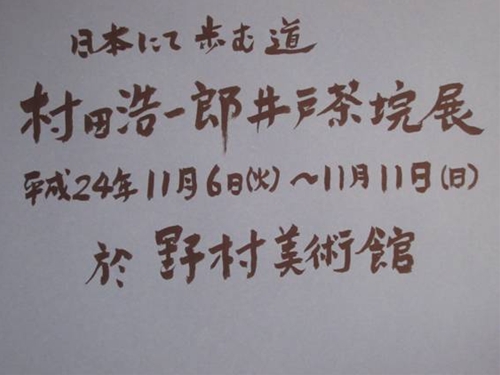 日本にて歩む道
村田浩一郎井戸茶垸展
平成24年11月6日(火)～11月11日(日)
於 野村美術館